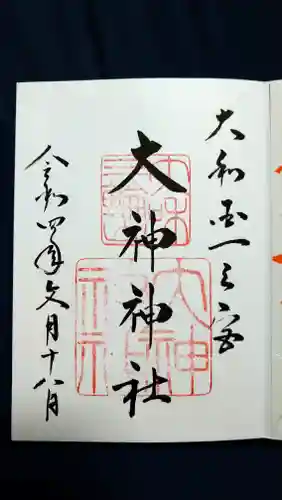 大和国一之宮
大神神社
令和四年文月十八日